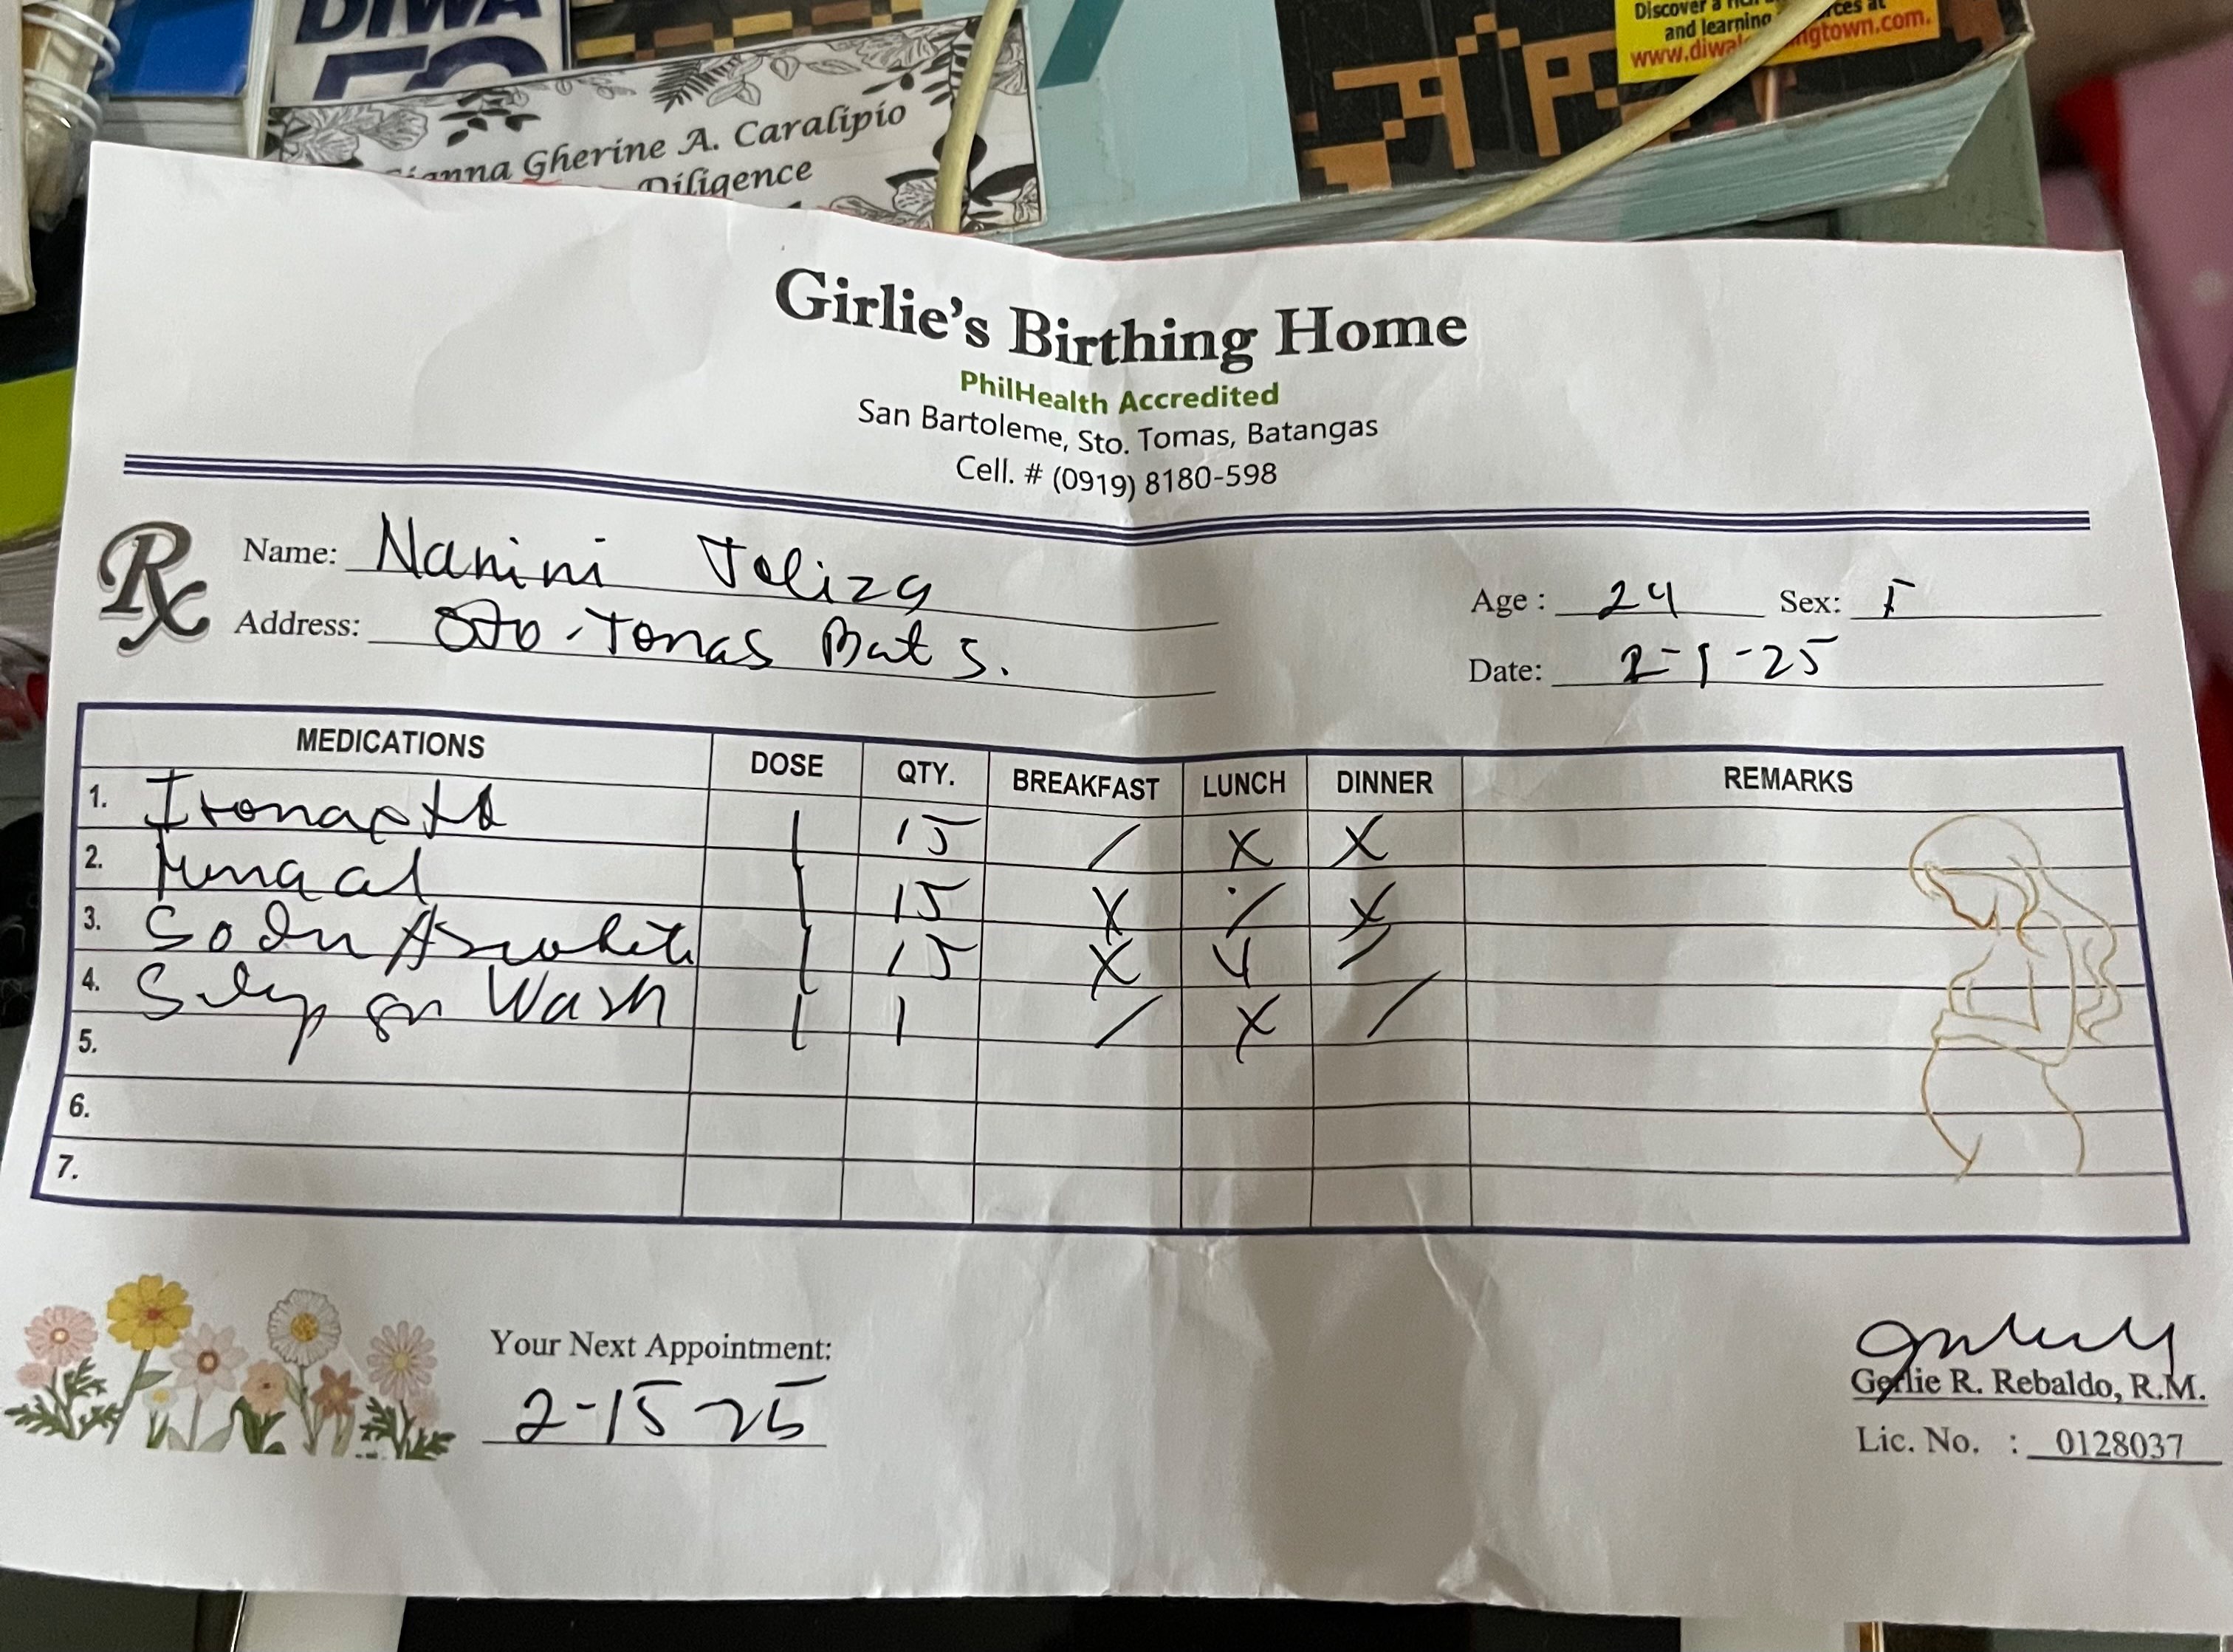 DIWA
Discover a
ces at
and learning
www.diwa
ngtown.com.
anna Gherine A. Caralipio
Diligence
Girlie's Birthing Home
PhilHealth Accredited
San Bartoleme, Sto. Tomas, Batangas
Cell. # (0919) 8180-598
Rx
Name: Nanini Joliza
Age : 24 Sex: F
Address: Sto. Tomas Bat s.
Date: 2-1-25
MEDICATIONS DOSE QTY. BREAKFAST LUNCH DINNER REMARKS
1. 1 15 / X X
2. 1 15 X / X
3. Sodu Ascorbate 1 15 X X /
4. Wash 1 1 / X /
5.
6.
7.
Your Next Appointment:
2-15-25
Gerlie R. Rebaldo, R.M.
Lic. No. : 0128037